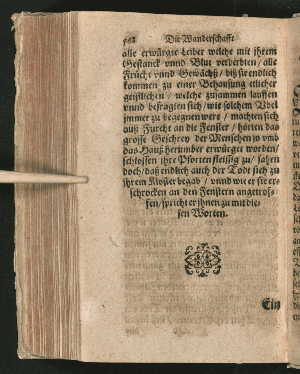 568 Die Wanderschafft
alle erwürgte Leiber welche mit jhrem
Gestanck vnnd Blut verderbten / alle
Frücht vnnd Gewächß / biß sie endlich
kommen zu einer Behausung etlicher
geistlichen / welche zusammen lauffen
vnnd befragten sich / wie solchem Vbel
jmmer zu begegnen were / machten sich
auß Furcht an die Fenster / hörten das
grosse Geschrey der Menschen so vmb
das Hauß herumber erwürget worden /
schlossen jhre Pforten fleissig zu / sahen
doch / daß endlich auch der Todt sich zu
jhrem Kloster begab / vnnd wie er sie er-
schrocken an den Fenstern angetrof-
fen / spricht er jhnen zu mit die-
sen Worten.
Ein